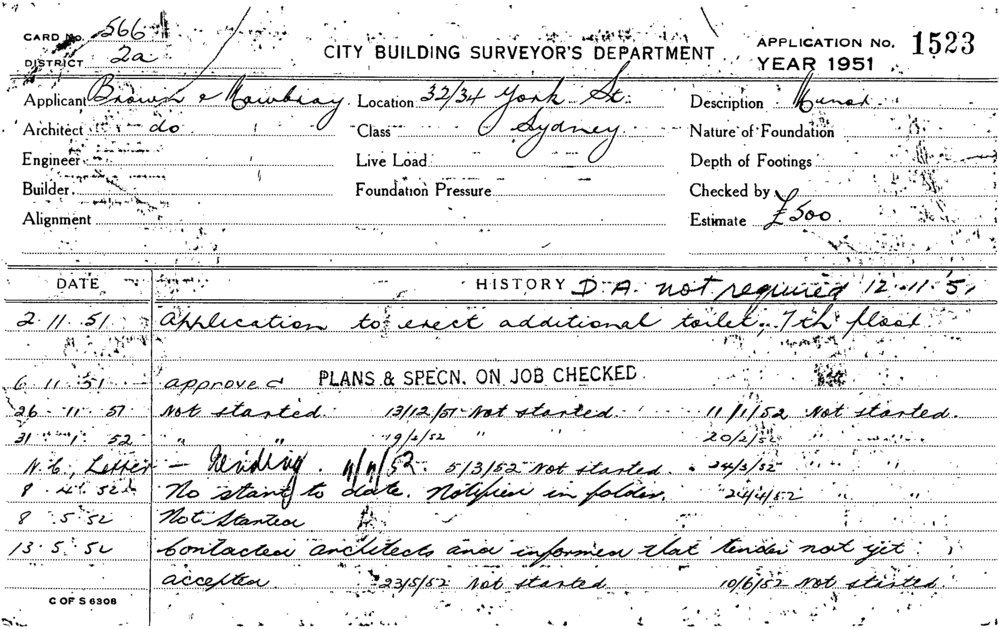 CARD No. 566
DISTRICT 2a
CITY BUILDING SURVEYOR'S DEPARTMENT
APPLICATION No. 1523
YEAR 1951
Applicant Brown & Mowbray Location 32/34 York St. Description
Architect do Class Sydney Nature of Foundation
Engineer Live Load Depth of Footings
Builder Foundation Pressure Checked by
Alignment Estimate £500
DATE HISTORY D.A. not required 12.11.51
2.11.51 Application to erect additional toilet, 7th floor
6.11.51 approved PLANS & SPECN. ON JOB CHECKED
26.11.51 Not started. 13/12/51 Not started. 11/1/52 Not started.
31.1.52 " " 19/2/52 " 20/2/52 "
N.C. Letter - Pending. 5/3/52 Not started. 24/3/52 " "
8.4.52 No start to date. Notified in folder. 24/4/52 " "
8.5.52 Not Started
13.5.52 Contacted architects and informed that tender not yet
accepted 23/5/52 Not started 10/6/52 Not started.
C OF S 6308